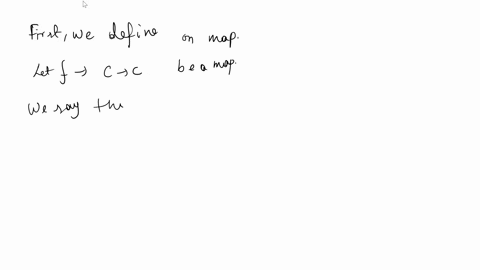 First, we define on map.
Let f → C → C be a map.
We say the